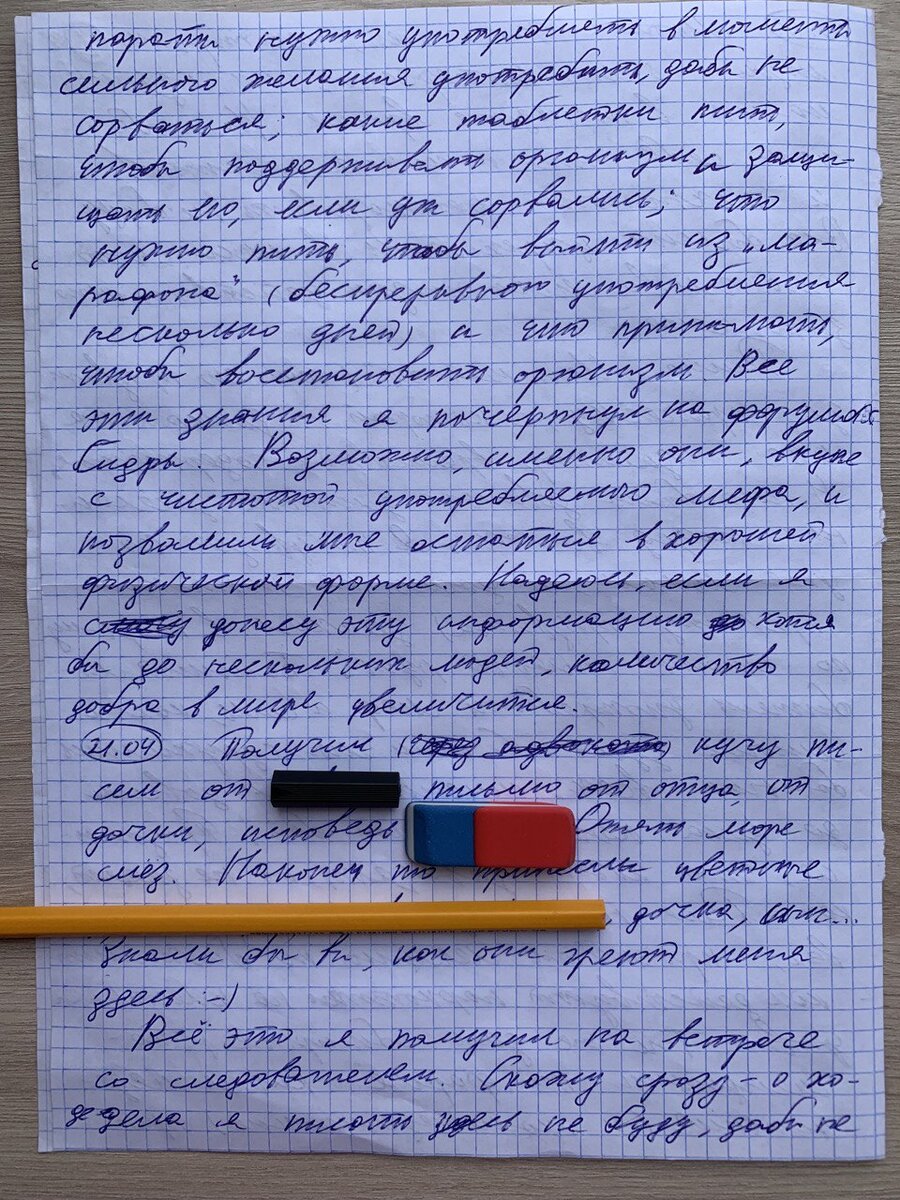 параты нужно употреблять в моменты
сильного желания употребить, дабы не
сорваться; какие таблетки пить,
чтобы поддерживать организм и защи-
щать его, если уж сорвались; что
нужно пить, чтобы выйти из „ма-
рафона" (беспрерывного употребления
несколько дней) и что принимать,
чтобы восстановить организм. Все
эти знания я почерпнул на форумах
Гидры. Возможно, именно они, вкупе
с чистотой употребляемого мефа, и
позволили мне остаться в хорошей
физической форме. Надеюсь, если я
донесу эту информацию хотя
бы до нескольких людей, количество
добра в мире увеличится.
21.04 Получил (через адвоката) кучу пи-
сем от письмо от отца, от
дочки, исповедь Опять море
слёз. Наконец то принесли цветные
, дочка, сын...
Знали бы вы, как они греют меня
здесь :-)
Всё это я получил на встрече
со следователем. Скажу сразу - о хо-
де дела я писать здесь не буду, дабы не